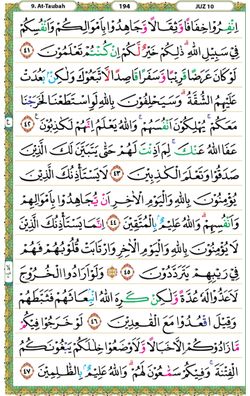 9. At-Taubah 194 JUZ 10
اِنْفِرُوْا خِفَافًا وَّثِقَالًا وَّجَاهِدُوْا بِاَمْوَالِكُمْ وَاَنْفُسِكُمْ
فِيْ سَبِيْلِ اللّٰهِ ۗذٰلِكُمْ خَيْرٌ لَّكُمْ اِنْ كُنْتُمْ تَعْلَمُوْنَ ٤١
لَوْ كَانَ عَرَضًا قَرِيْبًا وَّسَفَرًا قَاصِدًا لَّاتَّبَعُوْكَ وَلٰكِنْۢ بَعُدَتْ
عَلَيْهِمُ الشُّقَّةُ ۗوَسَيَحْلِفُوْنَ بِاللّٰهِ لَوِ اسْتَطَعْنَا لَخَرَجْنَا
مَعَكُمْۚ يُهْلِكُوْنَ اَنْفُسَهُمْۚ وَاللّٰهُ يَعْلَمُ اِنَّهُمْ لَكٰذِبُوْنَ ٤٢
عَفَا اللّٰهُ عَنْكَۚ لِمَ اَذِنْتَ لَهُمْ حَتّٰى يَتَبَيَّنَ لَكَ الَّذِيْنَ
صَدَقُوْا وَتَعْلَمَ الْكٰذِبِيْنَ ٤٣ لَا يَسْتَأْذِنُكَ الَّذِيْنَ
يُؤْمِنُوْنَ بِاللّٰهِ وَالْيَوْمِ الْاٰخِرِ اَنْ يُّجَاهِدُوْا بِاَمْوَالِهِمْ
وَاَنْفُسِهِمْۗ وَاللّٰهُ عَلِيْمٌۢ بِالْمُتَّقِيْنَ ٤٤ اِنَّمَا يَسْتَأْذِنُكَ الَّذِيْنَ
لَا يُؤْمِنُوْنَ بِاللّٰهِ وَالْيَوْمِ الْاٰخِرِ وَارْتَابَتْ قُلُوْبُهُمْ فَهُمْ
فِيْ رَيْبِهِمْ يَتَرَدَّدُوْنَ ٤٥ وَلَوْ اَرَادُوا الْخُرُوْجَ
لَاَعَدُّوْا لَهٗ عُدَّةً وَّلٰكِنْ كَرِهَ اللّٰهُ انْۢبِعَاثَهُمْ فَثَبَّطَهُمْ
وَقِيْلَ اقْعُدُوْا مَعَ الْقٰعِدِيْنَ ٤٦ لَوْ خَرَجُوْا فِيْكُمْ
مَّا زَادُوْكُمْ اِلَّا خَبَالًا وَّلَا۟اَوْضَعُوْا خِلٰلَكُمْ يَبْغُوْنَكُمُ
الْفِتْنَةَۚ وَفِيْكُمْ سَمّٰعُوْنَ لَهُمْۗ وَاللّٰهُ عَلِيْمٌۢ بِالظّٰلِمِيْنَ ٤٧